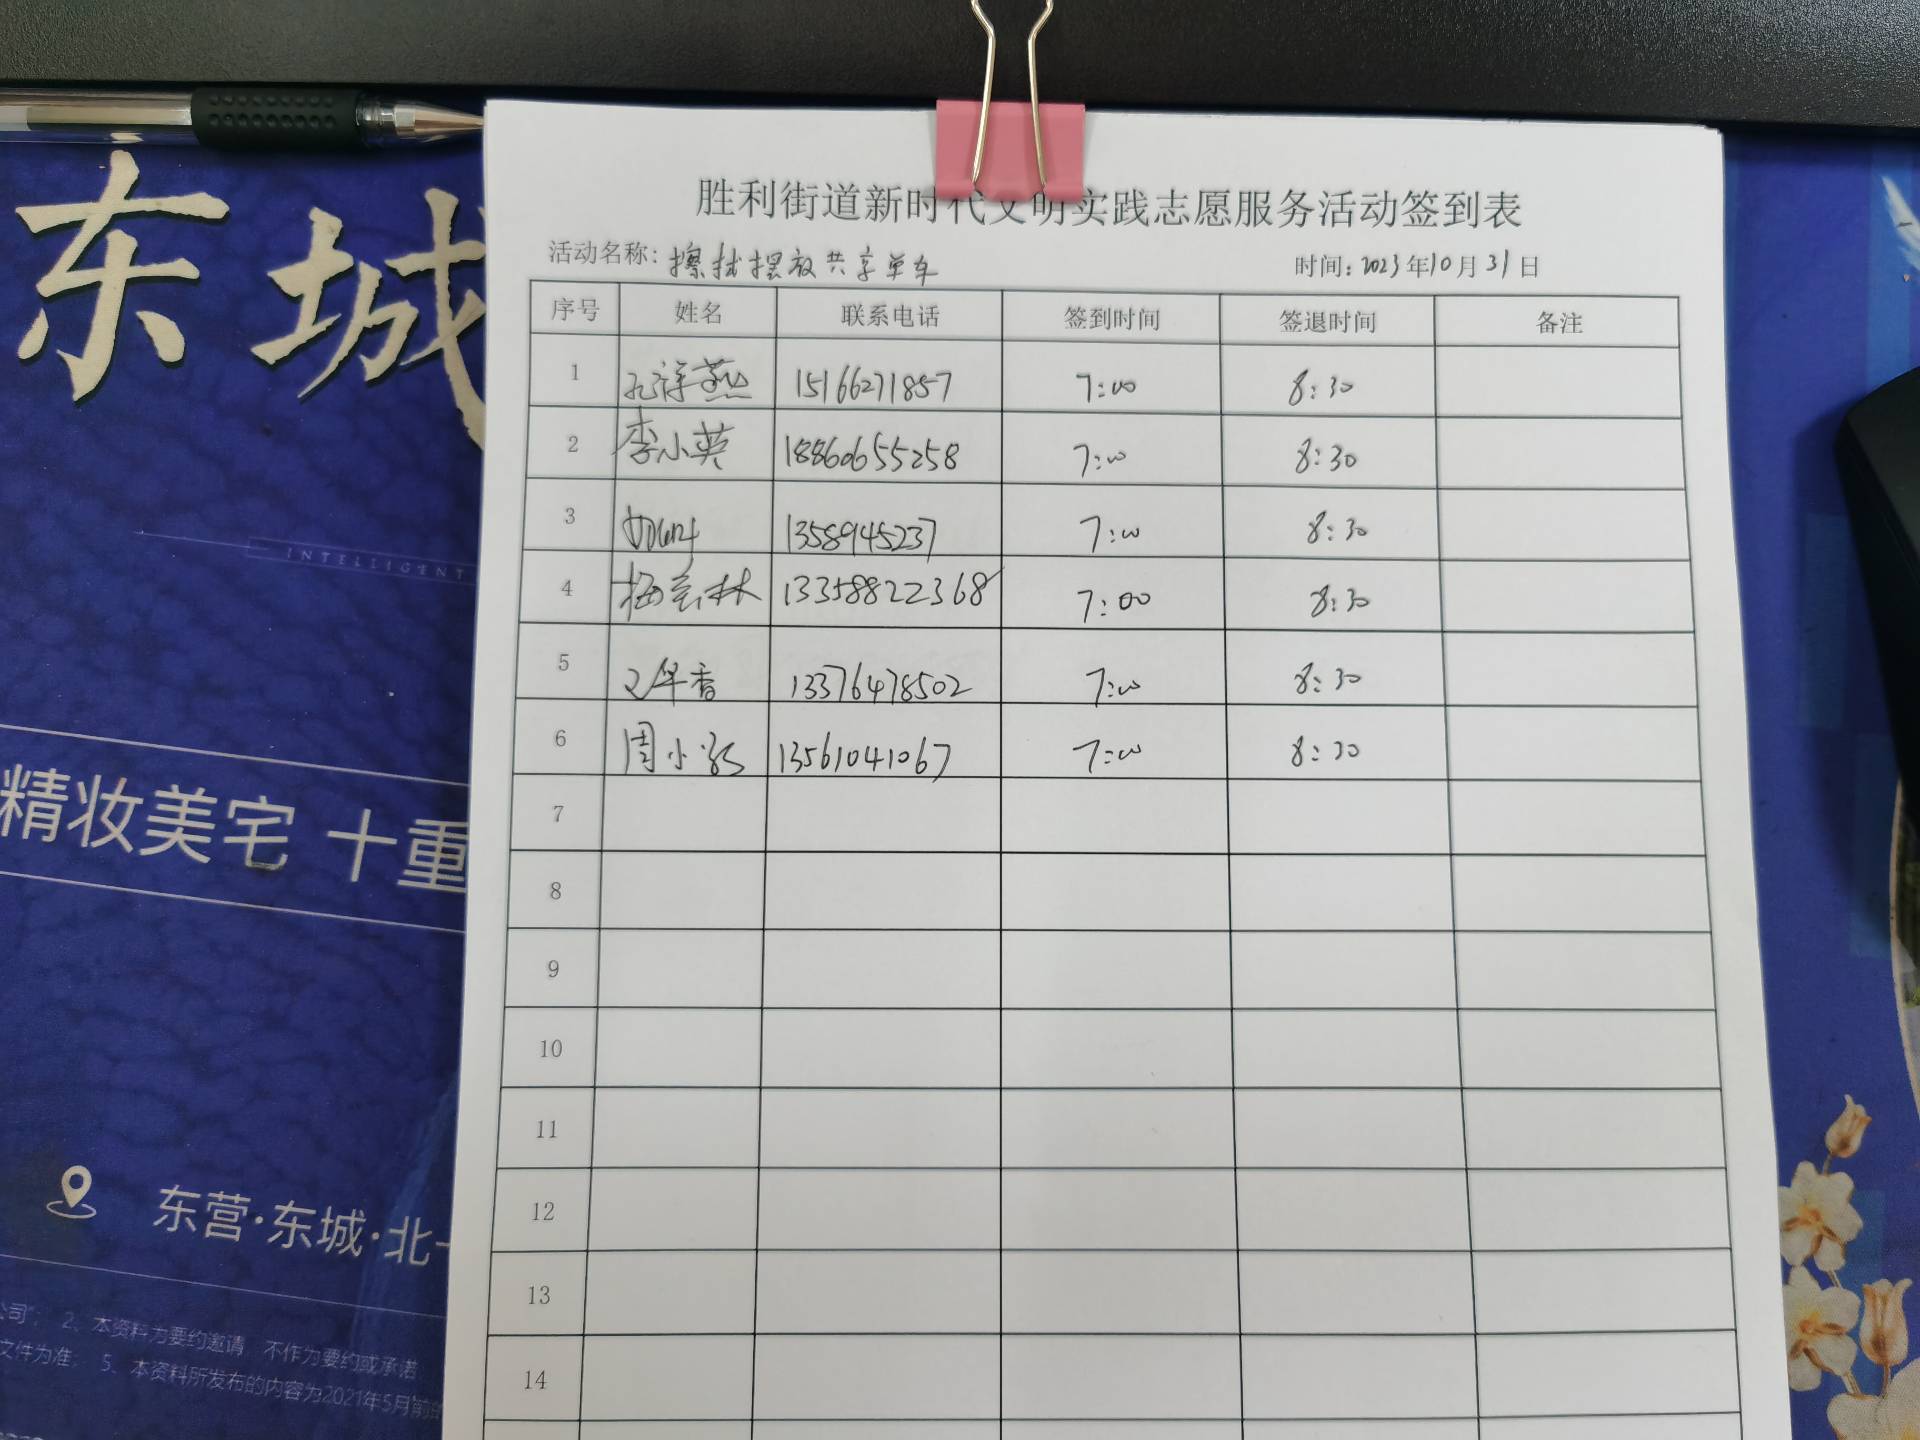 胜利街道新时代文明实践志愿服务活动签到表
活动名称：擦拭摆放共享单车 时间：2023年10月31日
序号 姓名 联系电话 签到时间 签退时间 备注
1 孔祥燕 15166271857 7:00 8:30
2 李小英 18860655258 7:00 8:30
3 1358945237 7:00 8:30
4 梅云林 13358822368 7:00 8:30
5 13376478502 7:00 8:30
6 周小 13561041067 7:00 8:30
7
8
9
10
11
12
13
14
东城
INTELLIGENT
精妆美宅 十重
东营·东城·北
公司"； 2、本资料为要约邀请，不作为要约或承诺
文件为准； 5、本资料所发布的内容为2021年5月前的